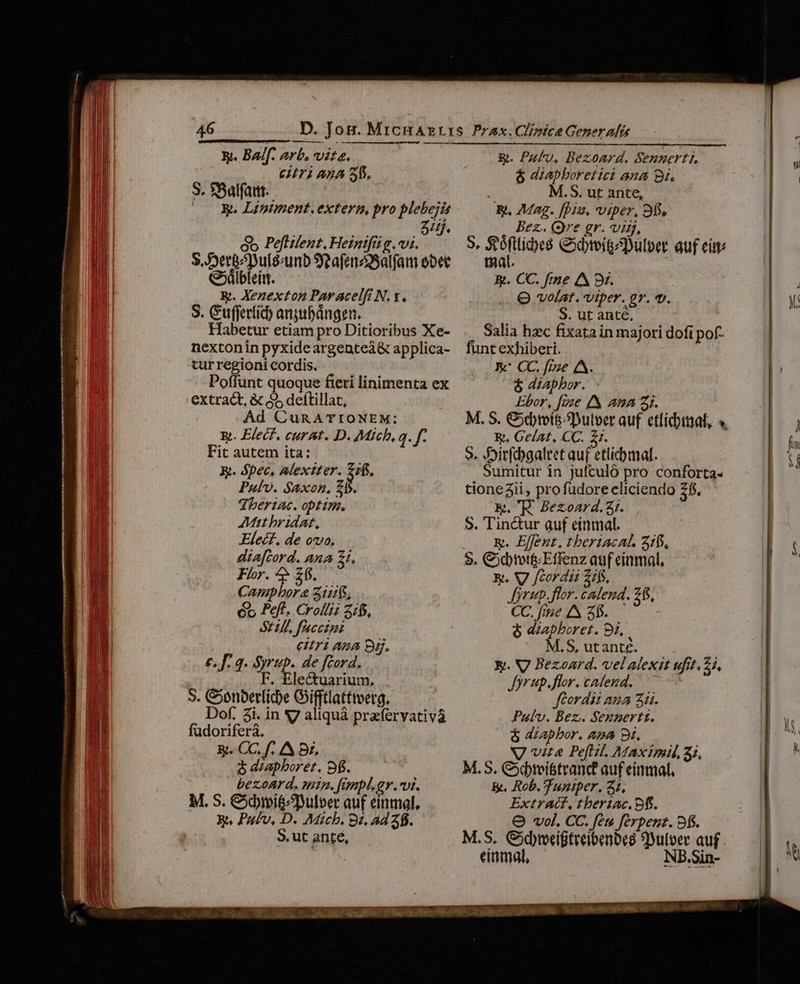 46 D. Joh. Michaelis Prax. Clinica Generalis
℞. Balf. arb. vitæ.
citri ana ʒß.
S. Balſam.
℞. Liniment. extern. pro plebejis
ʒiij.
Peſtilent. Heinifiig. vi.
S. Hertz-Puls-und Naſen-Balſam oder
Sälblein.
℞. Xenexton Paracelſi N. 1.
S. Euſſerlich anzuhängen.
Habetur etiam pro Ditioribus Xe-
nexton in pyxide argenteâ & applica-
tur regioni cordis.
Poſſunt quoque fieri linimenta ex
extract. & deſtillat.
Ad Curationem:
℞. Elect. curat. D. Mich. q. ſ.
Fit autem ita:
℞. Spec. alexiter. ʒiß.
Pulv. Saxon. ʒß.
Theriac. optim.
Mithridat.
Elect. de ovo,
diaſcord. ana ʒi.
Flor. 🜍 ʒß.
Camphoræ ʒiiiß.
Peſt. Crollii ʒiß.
Still. ſuccini
citri ana ℈ij.
c. ſ. q. Syrup. de ſcord.
F. Electuarium.
S. Sonderliche Gifftlattwerg.
Doſ. ʒi. in 🜄 aliquâ præſervativâ
ſudoriferâ.
℞. CC. ſ. 🜂 ℈i.
♁ diaphoret. ℈ß.
bezoard. min. ſimpl. gr. vi.
M. S. Schwitz-Pulver auf einmal.
℞. Pulv. D. Mich. ℈i. ad ʒß.
S. ut ante.
℞. Pulv. Bezoard. Sennerti.
♁ diaphoretici ana ℈i.
M. S. ut ante.
℞. Mag. ſpin. viper. ℈ß.
Bez. Ore gr. viij.
S. Köſtliches Schwitz-Pulver auf ein-
mal.
℞. CC. ſine 🜂 ℈i.
🜔 volat. viper. gr. v.
S. ut ante.
Salia hæc fixata in majori doſi poſ-
ſunt exhiberi.
℞ CC. ſine 🜂.
♁ diaphor.
Ebor. ſine 🜂 ana ʒi.
M. S. Schwitz-Pulver auf etlichmal.
℞. Gelat. CC. ʒi.
S. Hirſchgalret auf etlichmal.
Sumitur in juſculô pro conforta-
tione ʒii, pro ſudore eliciendo ʒß.
℞. Bezoard. ʒi.
S. Tinctur auf einmal.
℞. Eſſent. theriacal. ʒiß.
S. Schwitz-Eſſenz auf einmal.
℞. 🜄 ſcordii ʒiß.
ſyrup. flor. calend. ʒß.
CC. ſine 🜂 ʒß.
♁ diaphoret. ℈i.
M. S. ut ante.
℞. 🜄 Bezoard. vel alexit uſit. ʒi.
ſyrup. flor. calend.
ſcordii ana ʒii.
Pulv. Bez. Sennerti.
♁ diaphor. ana ℈i.
🜄 vitæ Peſtil. Maximil. ʒi.
M. S. Schwitztranck auf einmal.
℞. Rob. Juniper. ʒi.
Extract. theriac. ℈ß.
🜔 vol. CC. ſeu ſerpent. ℈ß.
M. S. Schweißtreibendes Pulver auf
einmal. NB. Sin-